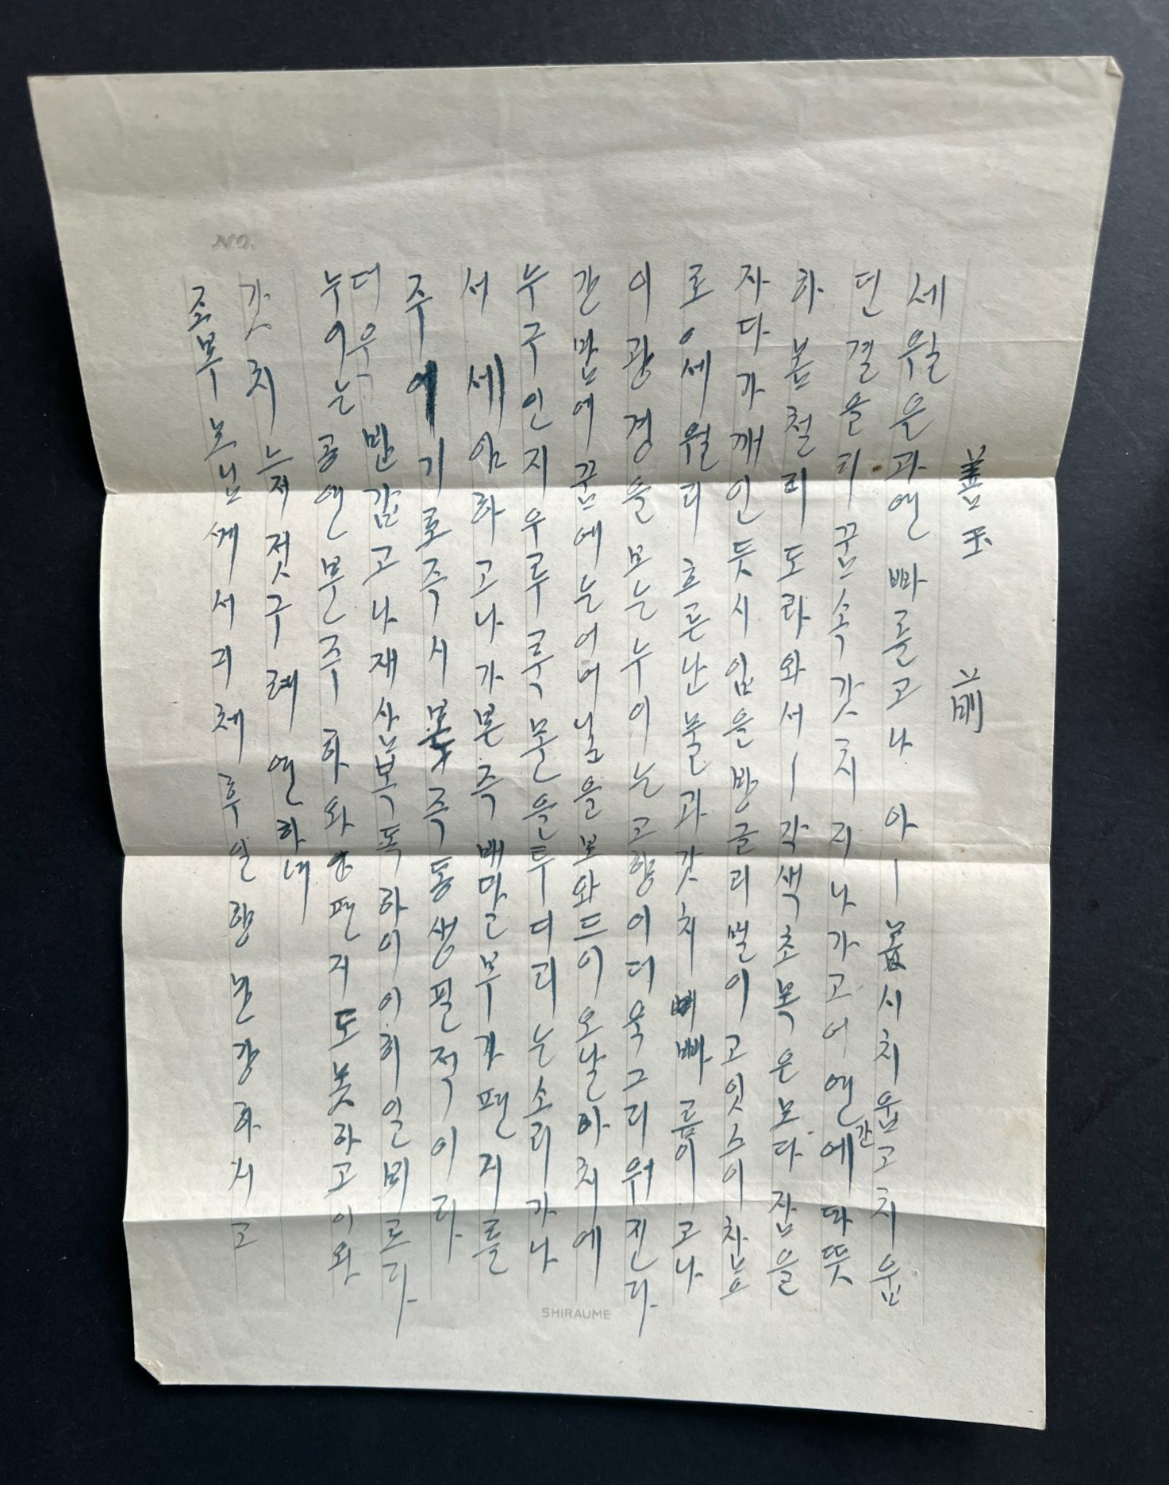 善玉 前
세월은과연 빠를고나 아ㅣ 봄시치웁고치웁
던 결을리 꿈속 갓치 지나가고어연간에따뜻
하 봄철리 도라와서ㅣ각색초목은모다 잠을
자다가깨인듯시 입을방글리벌이고잇스이 차노
로 세월리 흐른난물과갓치 빠름이고나
이광경을 보는누이는고향이더욱그리워진다.
간밤에꿈에는어머님을보와드이 오날아치에
누구인지우루룩문을투더리는소리가나
서 세암하고나가본즉배달부가편지를
주에기로즉시 본즉동생필적이라
더욱 반갑고나재산복독하이 이히일비로다.
누이는공연분주하와 편지도못하고이와
갓치 느저젓구려 연하여
조부모님게서긔체후일향만강하시고
NO.
SHIRAUME